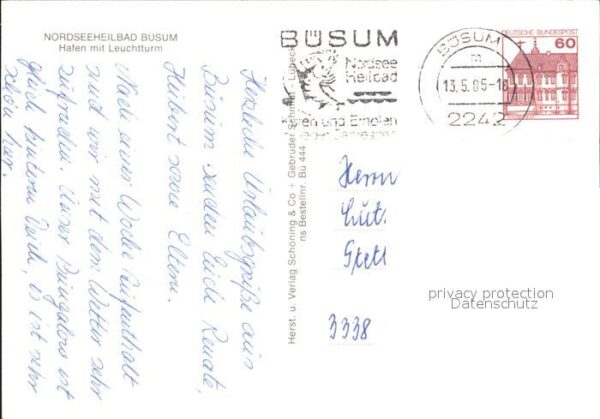 NORDSEEHEILBAD BÜSUM
Hafen mit Leuchtturm
Herzliche Urlaubsgrüße aus
Büsum senden Euch Renate,
Hubert sowie Eltern.
Nach einer Woche Aufenthalt
sind wir mit dem Wetter sehr
zufrieden. Unser Bungalow ist
gleich hinterm Deich, es ist sehr
schön hier.
Herst. u. Verlag Schöning & Co + Gebrüder Schmidt, Lübeck
ns Bestellnr. Bü 444
BÜSUM
Nordsee
Heilbad
und Erholen
BÜSUM
m
13.5.85-16
2242
DEUTSCHE BUNDESPOST
60
Herrn
Stell
3338
privacy protection
Datenschutz